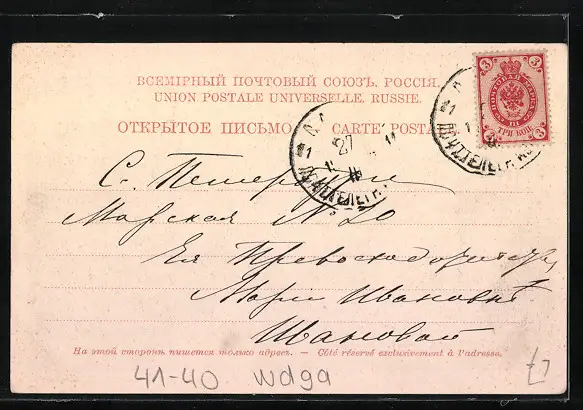 ВСЕМІРНЫЙ ПОЧТОВЫЙ СОЮЗЪ. РОССІЯ.
UNION POSTALE UNIVERSELLE. RUSSIE.
ОТКРЫТОЕ ПИСЬМО — CARTE POSTA
3 3
ТРИ КОП.
3
27
С. Петербургъ
Морская № 20
Ея Превосходительству
Маріи Ивановнѣ
Шановой
На этой сторонѣ пишется только адресъ. — Côté réservé exclusivement à l'adresse.
41-40 wdga